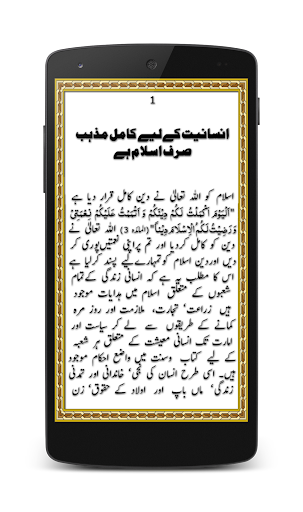 1
انسانیت کے لیے کامل مذہب
صرف اسلام ہے
اسلام کو اللہ تعالیٰ نے دین کامل قرار دیا ہے
"اَلْیَوْمَ اَکْمَلْتُ لَکُمْ دِیْنَکُمْ وَاَتْمَمْتُ عَلَیْکُمْ نِعْمَتِیْ
وَرَضِیْتُ لَکُمُ الْاِسْلَامَ دِیْناً" (المائدہ 3) اللہ تعالیٰ نے
دین کو کامل کردیا اور تم پر اپنی نعمتیں پوری کر
دیں اور دین اسلام کو تمہارے لیے پسند کر لیا ہے
اس کا مطلب یہ ہے کہ انسانی زندگی کے تمام
شعبوں کے متعلق اسلام میں ہدایات موجود
ہیں زراعت' تجارت، ملازمت اور روز مرہ
کمانے کے طریقوں سے لے کر سیاست اور
امارت تک انسانی معیشت کے متعلق ہر شعبہ
کے لیے کتاب و سنت میں واضح احکام موجود
ہیں۔ اسی طرح انسان کی نجی' خاندانی اور تمدنی
زندگی' ماں باپ اور اولاد کے حقوق' زن